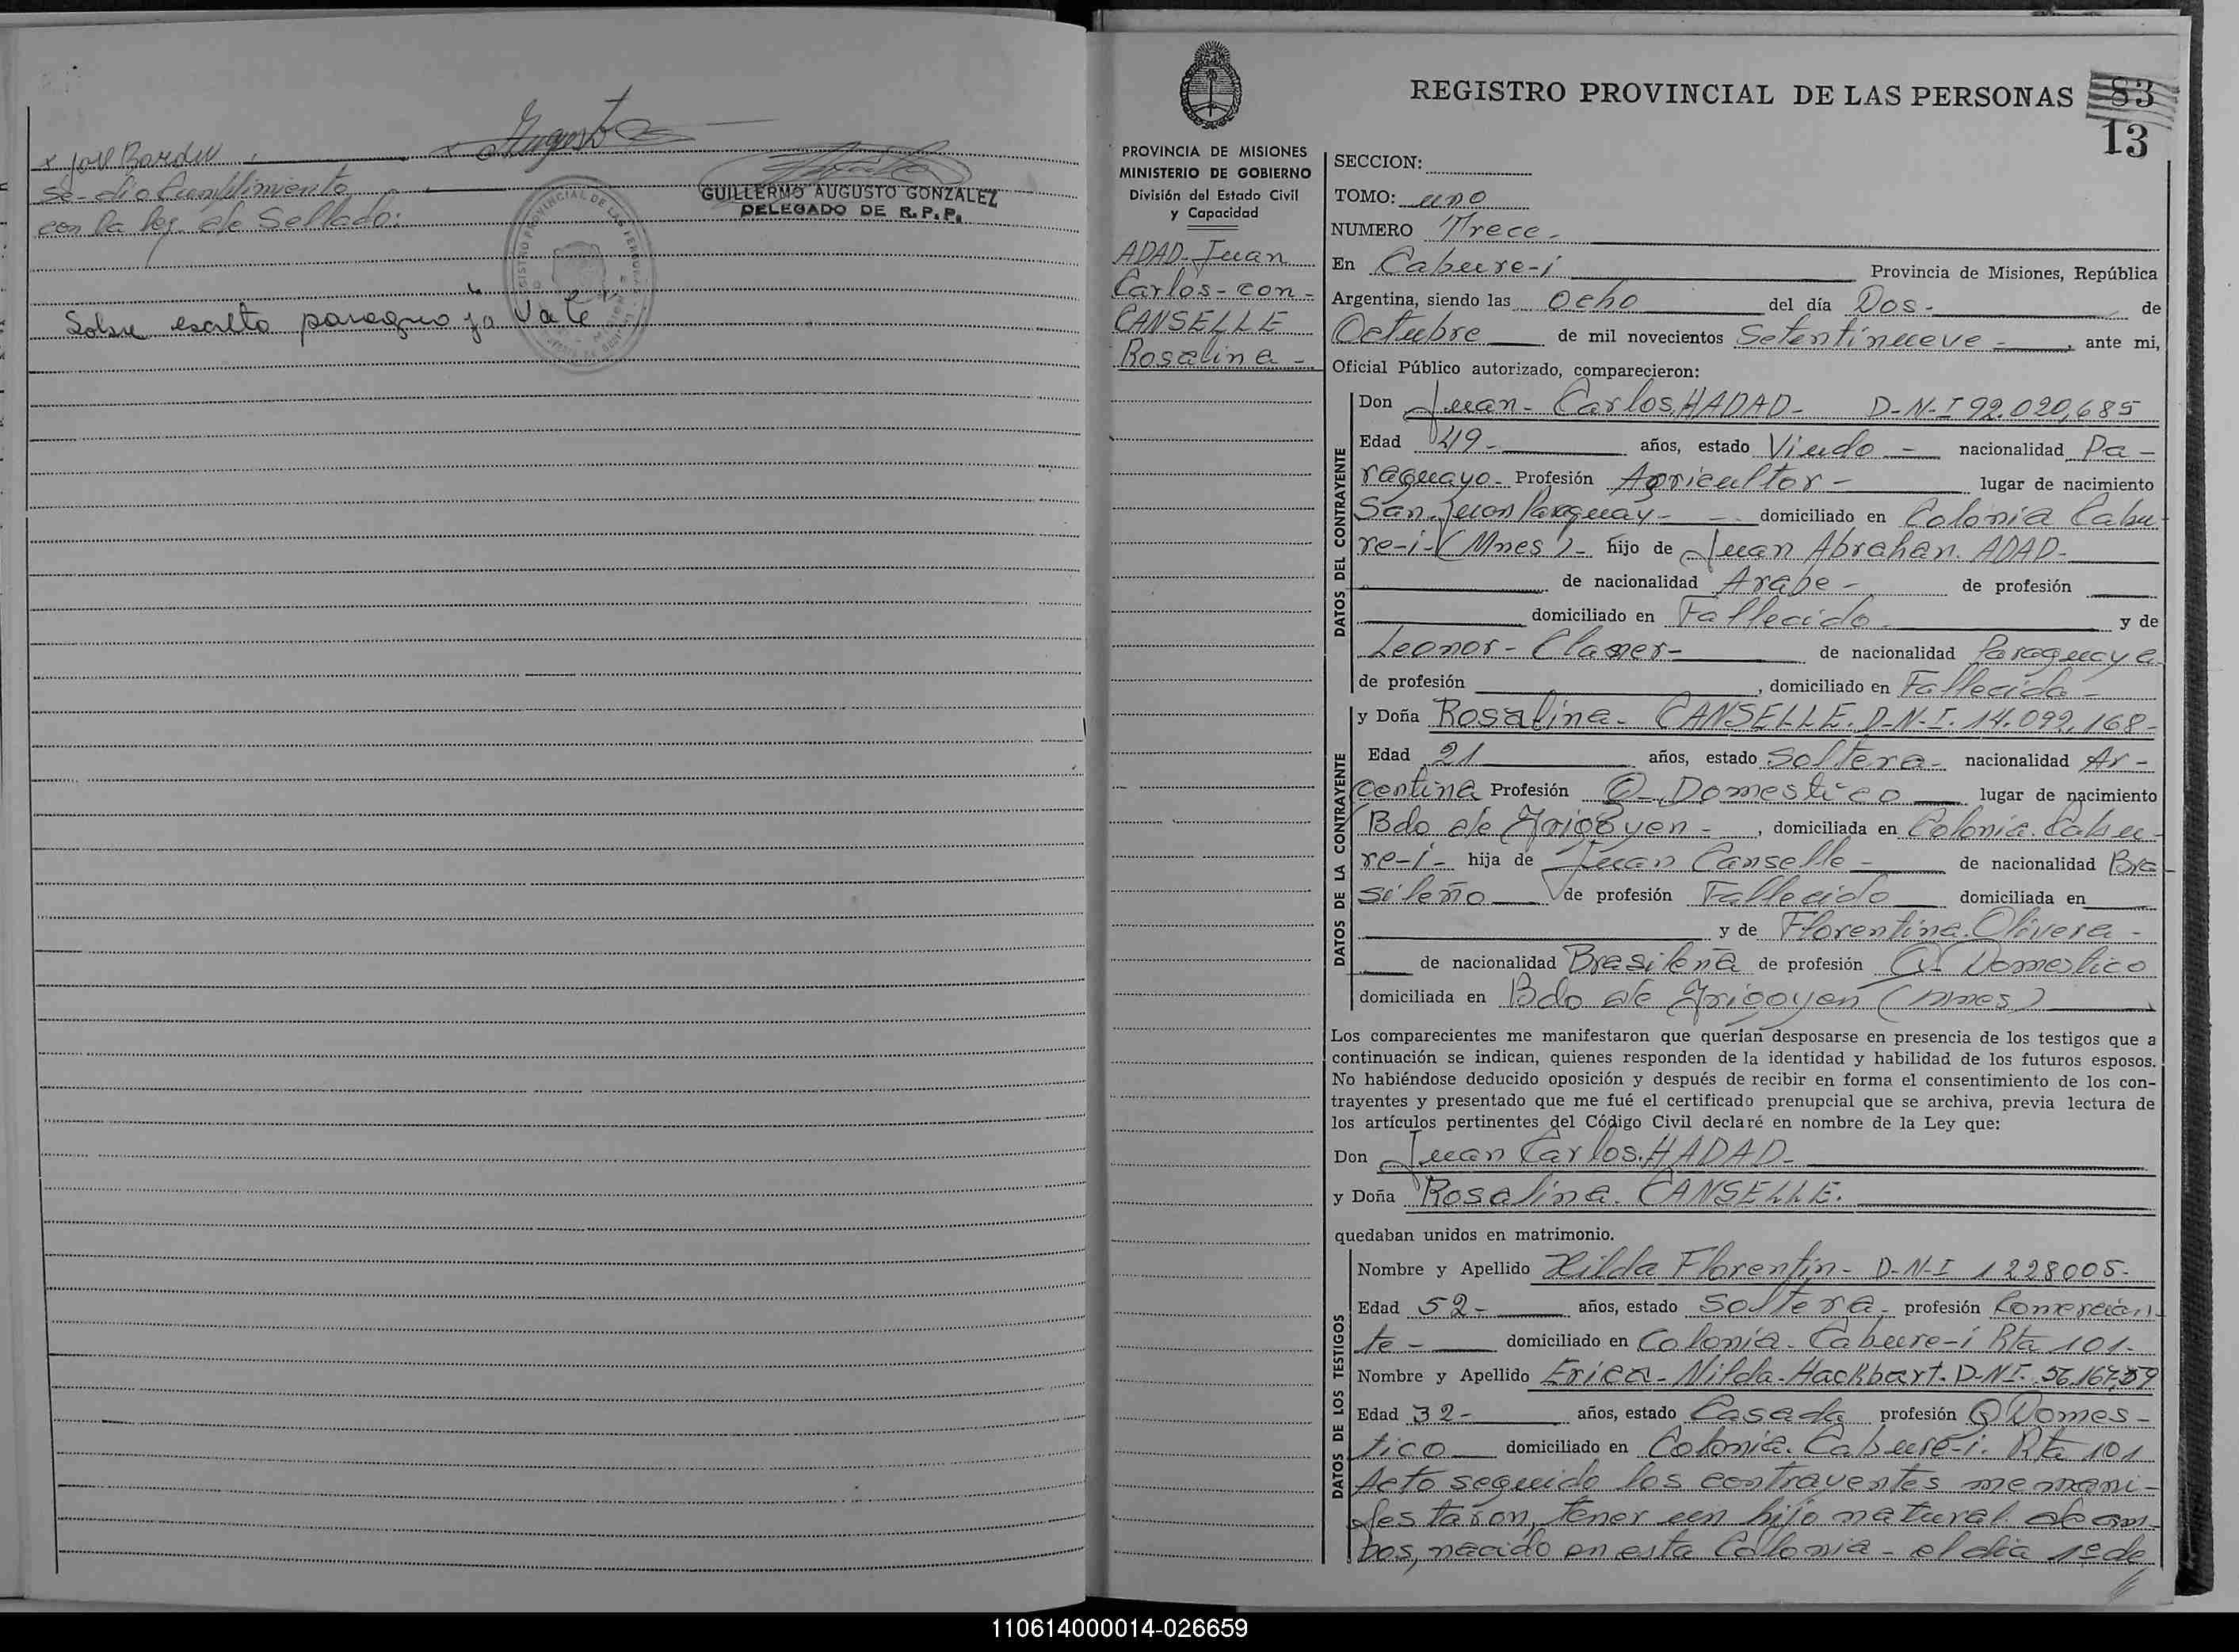 x José
Augusto
Se dio Cumplimiento
con la ley de Sellado:
GUILLERMO AUGUSTO GONZALEZ
DELEGADO DE R.P.P.
Sobre escrito paraguayo Vale
REGISTRO PROVINCIAL DE LAS PERSONAS 83
13
PROVINCIA DE MISIONES
MINISTERIO DE GOBIERNO
División del Estado Civil
y Capacidad
ADAD-Juan
Carlos-con-
CANSELLE
Rosalina-
SECCION:
TOMO: uno
NUMERO Trece-
En Cabure-i Provincia de Misiones, República
Argentina, siendo las Ocho del día Dos- de
Octubre de mil novecientos Setentinueve-, ante mi,
Oficial Público autorizado, comparecieron:
DATOS DEL CONTRAYENTE
Don Juan-Carlos.HADAD- D-N-I 92.020,685
Edad 49- años, estado Viudo- nacionalidad Pa-
raguayo- Profesión Agricultor- lugar de nacimiento
San Juan Paraguay- domiciliado en Colonia Cabu-
re-i-(Mnes)- hijo de Juan Abrahan. ADAD-
de nacionalidad Arabe- de profesión
domiciliado en Fallecido- y de
Leonor- de nacionalidad Paraguaya
de profesión , domiciliado en Fallecida-
DATOS DE LA CONTRAYENTE
y Doña Rosalina- CANSELLE. D-N-I. 14.092,168-
Edad 21 años, estado Soltera- nacionalidad Ar-
gentina Profesión Q-Domestico lugar de nacimiento
Bdo de Yrigoyen-, domiciliada en Colonia.Cabu-
re-i- hija de Juan Canselle- de nacionalidad Bra-
sileño de profesión Fallecido domiciliada en
y de Florentina.Olivera-
de nacionalidad Brasileña de profesión Q-Domestico
domiciliada en Bdo de Yrigoyen (Mnes)
Los comparecientes me manifestaron que querían desposarse en presencia de los testigos que a
continuación se indican, quienes responden de la identidad y habilidad de los futuros esposos.
No habiéndose deducido oposición y después de recibir en forma el consentimiento de los con-
trayentes y presentado que me fué el certificado prenupcial que se archiva, previa lectura de
los artículos pertinentes del Código Civil declaré en nombre de la Ley que:
Don Juan Carlos.HADAD-
y Doña Rosalina. CANSELLE.
quedaban unidos en matrimonio.
DATOS DE LOS TESTIGOS
Nombre y Apellido Hilda Florentin- D-N-I 1228005-
Edad 52- años, estado Soltera- profesión Comercian-
te- domiciliado en Colonia-Cabure-i Rta 101-
Nombre y Apellido Erica-Nilda-Hackbart-D-N-I-
Edad 32- años, estado Casada profesión Q Domes-
tico domiciliado en Colonia.Cabure-i. Rta 101
Acto seguido los contrayentes me mani-
festaron, tener un hijo natural de am-
bos, nacido en esta Colonia- el dia 1º de
110614000014-026659